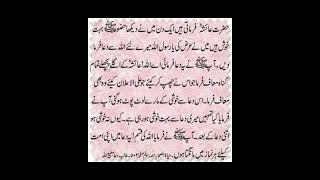 حضرت عائشہؓ فرماتی ہیں ایک دن میں نے دیکھا حضور ﷺ بہت
خوش ہیں میں نے عرض کی یا رسول اللہ میرے لئے اللہ سے دعا فرما
دیں۔ آپ ﷺ نے یہ دعا فرمائی اے اللہ! عائشہؓ کے اگلے پچھلے تمام
گناہ معاف فرما جو اس نے چھپ کر کیئے جو علی الاعلان کیئے وہ بھی
معاف فرما۔ اس دعا سے خوشی کے مارے لوٹ پوٹ ہو گئی آپ نے
فرمایا کیا تمہیں میری دعا سے بہت خوشی ہو رہی ہے۔ کیوں نہ خوشی ہو
اتنی دعا کے بعد۔ آپ ﷺ نے فرمایا اللہ کی قسم! یہ دعا میں اپنی امت
کیلئے ہر نماز میں مانگتا ہوں۔